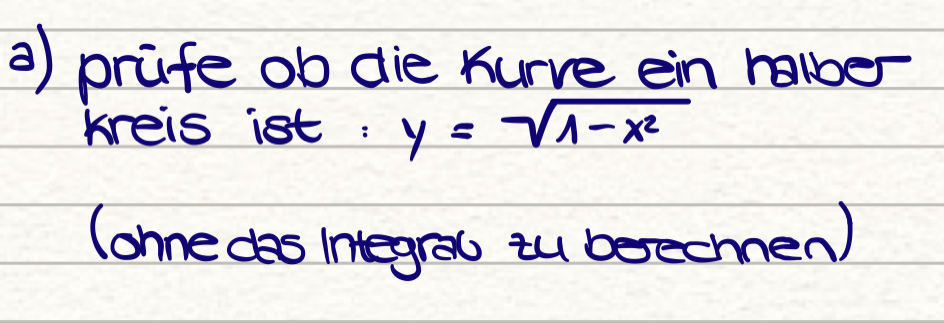 a) prüfe ob die Kurve ein halber
kreis ist : y = √1-x²
(ohne das Integral zu berechnen)